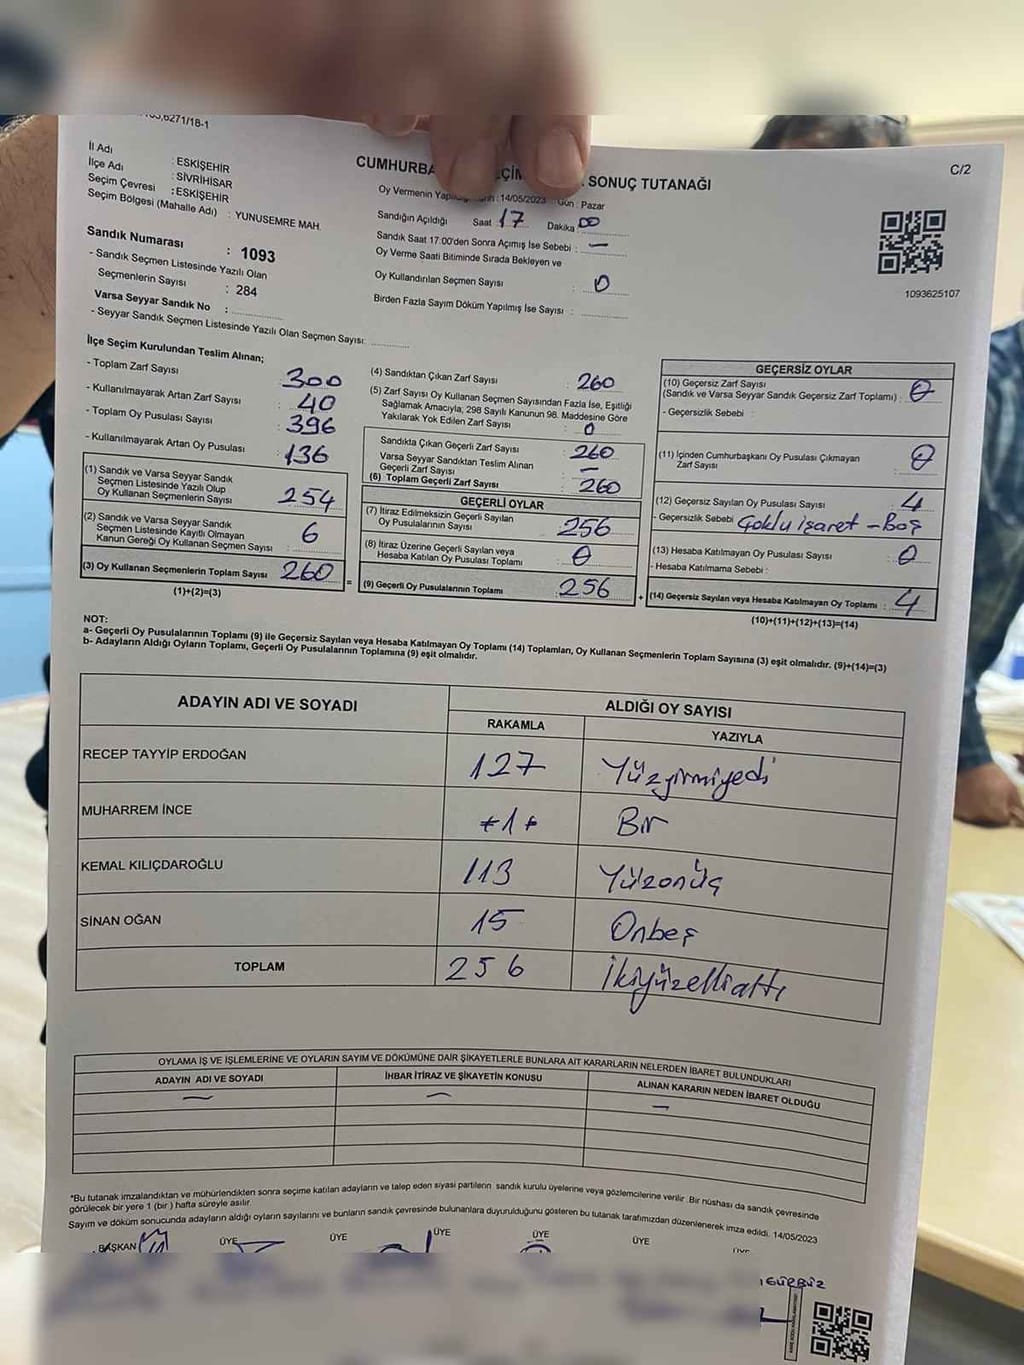 6271/18-1
C/2
İl Adı : ESKİŞEHİR
İlçe Adı : SİVRİHİSAR
Seçim Çevresi : ESKİŞEHİR
Seçim Bölgesi (Mahalle Adı) : YUNUSEMRE MAH.
SONUÇ TUTANAĞI
14/05/2023 Gün : Pazar
Sandığın Açıldığı Saat 17 Dakika 00
Sandık Saat 17:00'den Sonra Açımış İse Sebebi : —
Oy Verme Saati Bitiminde Sırada Bekleyen ve
Oy Kullandırılan Seçmen Sayısı : 0
Birden Fazla Sayım Döküm Yapılmış İse Sayısı :
1093625107
Sandık Numarası : 1093
- Sandık Seçmen Listesinde Yazılı Olan
Seçmenlerin Sayısı : 284
Varsa Seyyar Sandık No :
- Seyyar Sandık Seçmen Listesinde Yazılı Olan Seçmen Sayısı:
İlçe Seçim Kurulundan Teslim Alınan;
- Toplam Zarf Sayısı : 300
- Kullanılmayarak Artan Zarf Sayısı : 40
- Toplam Oy Pusulası Sayısı : 396
- Kullanılmayarak Artan Oy Pusulası : 136
(1) Sandık ve Varsa Seyyar Sandık
Seçmen Listesinde Yazılı Olup
Oy Kullanan Seçmenlerin Sayısı : 254
(2) Sandık ve Varsa Seyyar Sandık
Seçmen Listesinde Kayıtlı Olmayan
Kanun Gereği Oy Kullanan Seçmen Sayısı : 6
(3) Oy Kullanan Seçmenlerin Toplam Sayısı : 260
(1)+(2)=(3)
(4) Sandıktan Çıkan Zarf Sayısı : 260
(5) Zarf Sayısı Oy Kullanan Seçmen Sayısından Fazla İse, Eşitliği
Sağlamak Amacıyla, 298 Sayılı Kanunun 98. Maddesine Göre
Yakılarak Yok Edilen Zarf Sayısı : 0
Sandıkta Çıkan Geçerli Zarf Sayısı : 260
Varsa Seyyar Sandıktan Teslim Alınan
Geçerli Zarf Sayısı : —
(6) Toplam Geçerli Zarf Sayısı : 260
GEÇERLİ OYLAR
(7) İtiraz Edilmeksizin Geçerli Sayılan
Oy Pusulalarının Sayısı : 256
(8) İtiraz Üzerine Geçerli Sayılan veya
Hesaba Katılan Oy Pusulası Toplamı : 0
= (9) Geçerli Oy Pusulalarının Toplamı : 256
GEÇERSİZ OYLAR
(10) Geçersiz Zarf Sayısı
(Sandık ve Varsa Seyyar Sandık Geçersiz Zarf Toplamı) : 0
- Geçersizlik Sebebi :
(11) İçinden Cumhurbaşkanı Oy Pusulası Çıkmayan
Zarf Sayısı : 0
(12) Geçersiz Sayılan Oy Pusulası Sayısı : 4
- Geçersizlik Sebebi Çoklu işaret - Boş
(13) Hesaba Katılmayan Oy Pusulası Sayısı : 0
- Hesaba Katılmama Sebebi :
+ (14) Geçersiz Sayılan veya Hesaba Katılmayan Oy Toplamı : 4
(10)+(11)+(12)+(13)=(14)
NOT:
a- Geçerli Oy Pusulalarının Toplamı (9) ile Geçersiz Sayılan veya Hesaba Katılmayan Oy Toplamı (14) Toplamları, Oy Kullanan Seçmenlerin Toplam Sayısına (3) eşit olmalıdır. (9)+(14)=(3)
b- Adayların Aldığı Oyların Toplamı, Geçerli Oy Pusulalarının Toplamına (9) eşit olmalıdır.
ADAYIN ADI VE SOYADI ALDIĞI OY SAYISI
RAKAMLA YAZIYLA
RECEP TAYYİP ERDOĞAN 127 Yüzyirmiyedi
MUHARREM İNCE *1* Bir
KEMAL KILIÇDAROĞLU 113 Yüzonüç
SİNAN OĞAN 15 Onbeş
TOPLAM 256 İkiyüzellialtı
OYLAMA İŞ VE İŞLEMLERİNE VE OYLARIN SAYIM VE DÖKÜMÜNE DAİR ŞİKAYETLERLE BUNLARA AİT KARARLARIN NELERDEN İBARET BULUNDUKLARI
ADAYIN ADI VE SOYADI İHBAR İTİRAZ VE ŞİKAYETİN KONUSU ALINAN KARARIN NEDEN İBARET OLDUĞU
— — —
*Bu tutanak imzalandıktan ve mühürlendikten sonra seçime katılan adayların ve talep eden siyasi partilerin sandık kurulu üyelerine veya gözlemcilerine verilir .Bir nüshası da sandık çevresinde
görülecek bir yere 1 (bir ) hafta süreyle asılır.
Sayım ve döküm sonucunda adayların aldığı oyların sayılarını ve bunların sandık çevresinde bulunanlara duyurulduğunu gösteren bu tutanak tarafımızdan düzenlenerek imza edildi. 14/05/2023
BAŞKAN ÜYE ÜYE ÜYE ÜYE ÜYE
GÜRBÜZ